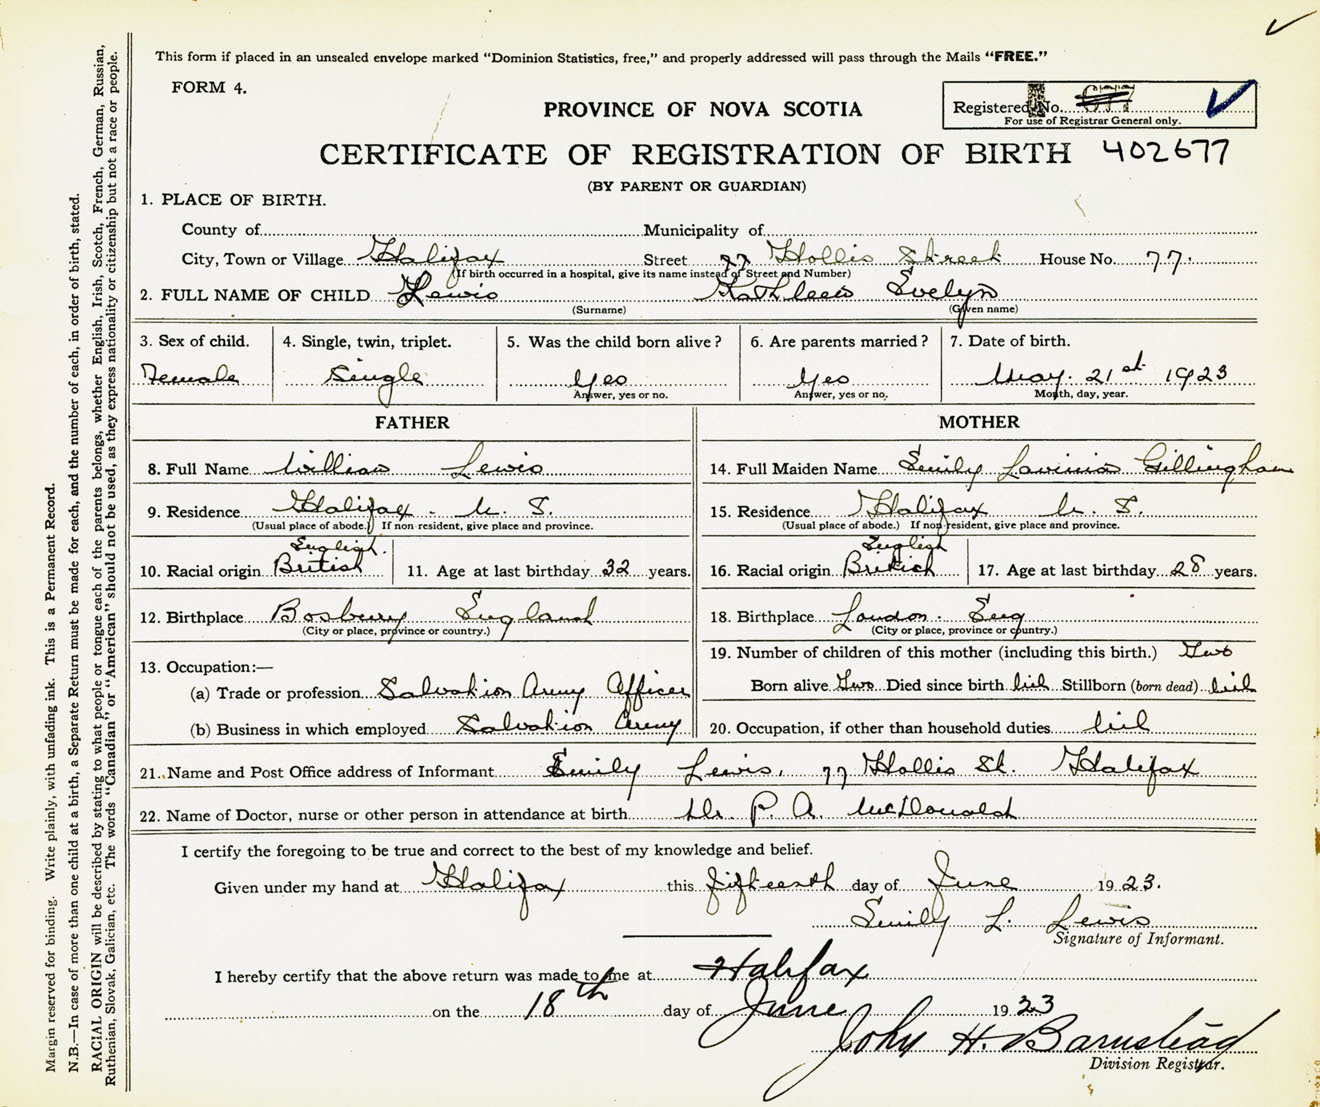 This form if placed in an unsealed envelope marked "Dominion Statistics, free," and properly addressed will pass through the Mails "FREE."
FORM 4.
PROVINCE OF NOVA SCOTIA
Registered No. 677
For use of Registrar General only.
CERTIFICATE OF REGISTRATION OF BIRTH 402677
(BY PARENT OR GUARDIAN)
1. PLACE OF BIRTH.
County of Municipality of
City, Town or Village Halifax Street 77 Hollis Street House No. 77.
(If birth occurred in a hospital, give its name instead of Street and Number)
2. FULL NAME OF CHILD Lewis Kathleen Evelyn
(Surname) (Given name)
3. Sex of child. 4. Single, twin, triplet. 5. Was the child born alive? 6. Are parents married? 7. Date of birth.
Female Single Yes Yes May. 21st 1923
Answer, yes or no. Answer, yes or no. Month, day, year.
FATHER MOTHER
8. Full Name William Lewis 14. Full Maiden Name Emily Lavinia Gillingham
9. Residence Halifax - N. S. 15. Residence Halifax N. S.
(Usual place of abode.) If non-resident, give place and province. (Usual place of abode.) If non-resident, give place and province.
English. English
10. Racial origin British 11. Age at last birthday 32 years. 16. Racial origin British 17. Age at last birthday 28 years.
12. Birthplace Bosbury England 18. Birthplace London. Eng
(City or place, province or country.) (City or place, province or country.)
13. Occupation:— 19. Number of children of this mother (including this birth.) Two
(a) Trade or profession Salvation Army Officer Born alive Two Died since birth nil Stillborn (born dead) nil
(b) Business in which employed Salvation Army 20. Occupation, if other than household duties nil
21. Name and Post Office address of Informant Emily Lewis, 77 Hollis St. Halifax
22. Name of Doctor, nurse or other person in attendance at birth Dr. P. A. McDonald
I certify the foregoing to be true and correct to the best of my knowledge and belief.
Given under my hand at Halifax this fifteenth day of June 1923.
Emily L. Lewis
Signature of Informant.
I hereby certify that the above return was made to me at Halifax
on the 18th day of June 1923
John H. Barnstead
Division Registrar.
Margin reserved for binding. Write plainly, with unfading ink. This is a Permanent Record.
N.B.—In case of more than one child at a birth, a Separate Return must be made for each, and the number of each, in order of birth, stated.
RACIAL ORIGIN will be described by stating to what people or tongue each of the parents belongs, whether English, Irish, Scotch, French, German, Russian,
Ruthenian, Slovak, Galician, etc. The words "Canadian" or "American" should not be used, as they express nationality or citizenship but not a race or people.